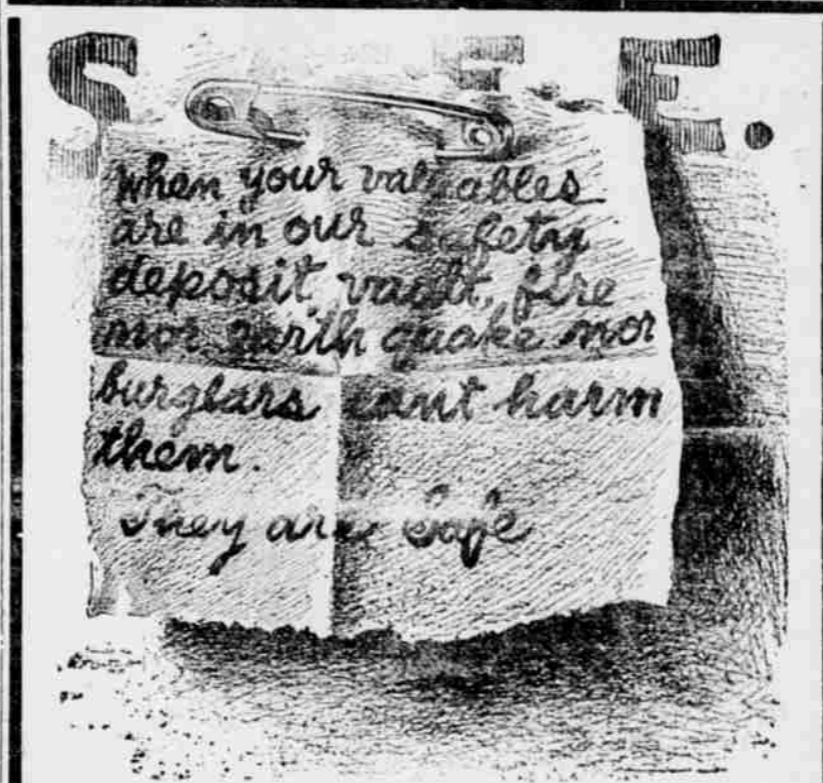 S FE.
When your valuables
are in our safety
deposit vault, fire
nor earth quake nor
burglars cant harm
them.
They are Safe